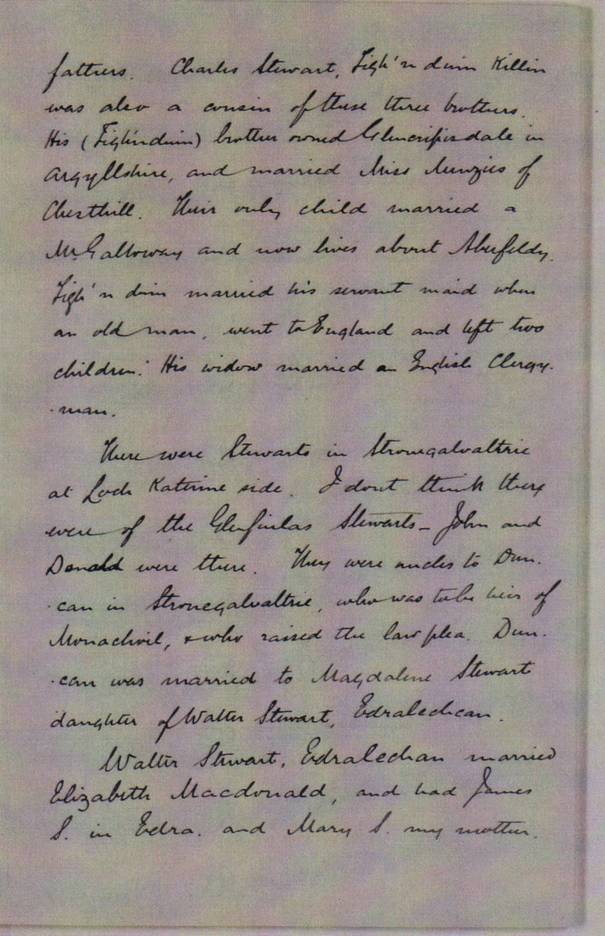 fathers. Charles Stewart, Tigh'n duin Killin
was also a cousin of these three brothers.
His (Tigh'nduin) brother owned Glencripesdale in
Argyllshire, and married Miss Menzies of
Chesthill. Their only child married a
Mr. Galloway and now lives about Aberfeldy.
Tigh'n duin married his servant maid when
an old man, went to England and left two
children. His widow married an English Clergy-
-man.
There were Stewarts in Stronegalvaltrie
at Loch Katrine side. I dont think they
were of the Glenfinlas Stewarts - John and
Donald were there. They were uncles to Dun-
-can in Stronegalvaltrie, who was to be heir of
Monachoil, & who raised the law plea. Dun-
-can was married to Magdalene Stewart
daughter of Walter Stewart, Edralechean.
Walter Stewart, Edralechan married
Elizabeth Macdonald, and had James
S. in Edra. and Mary S. my mother.